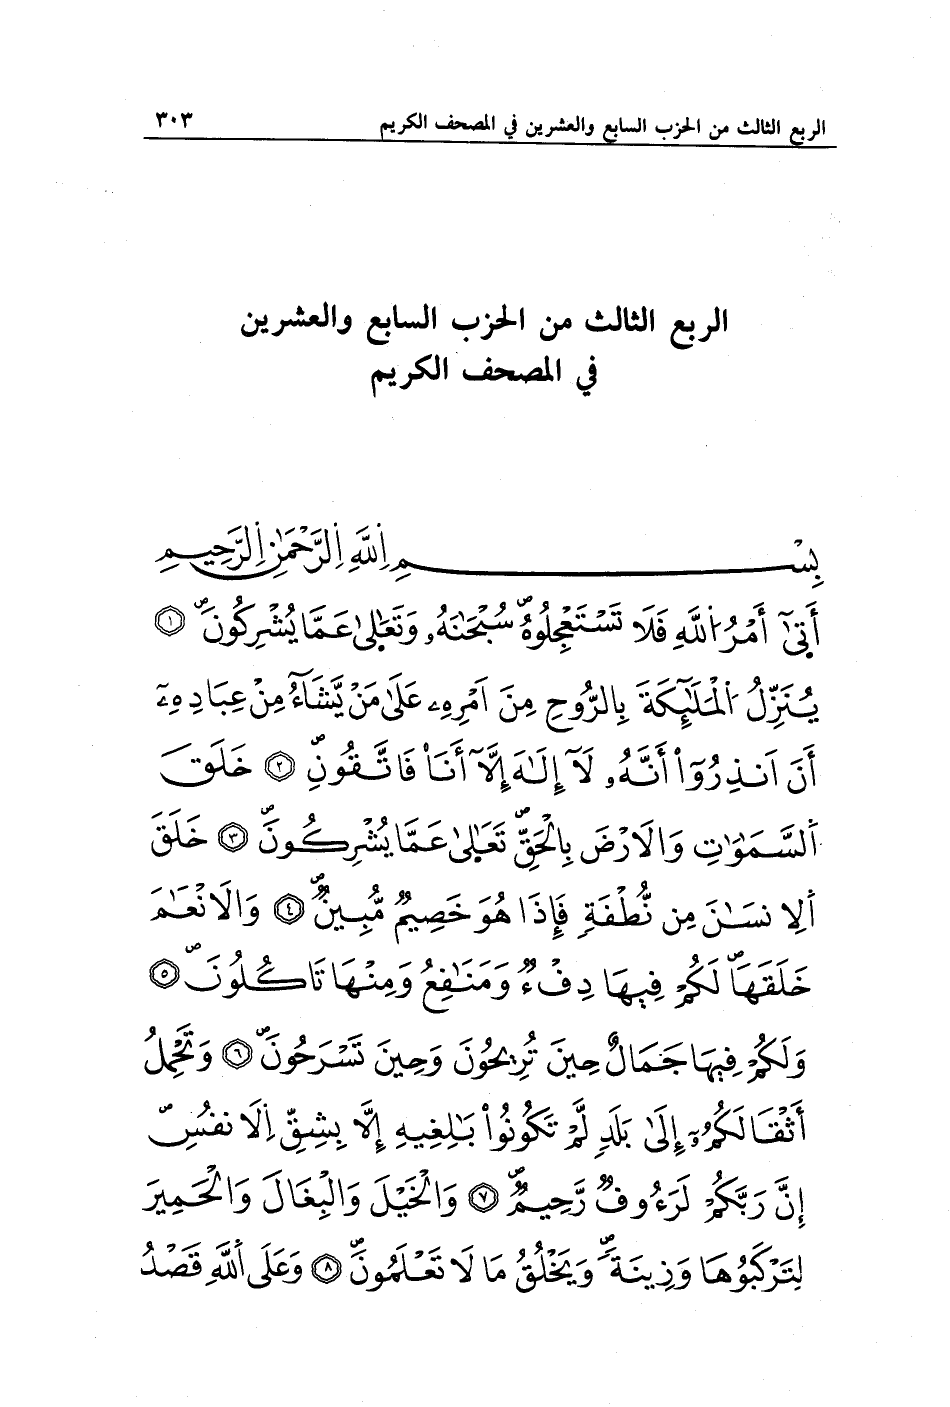 الربع الثالث من الحزب السابع والعشرين في المصحف الكريم ٣٠٣
الربع الثالث من الحزب السابع والعشرين
في المصحف الكريم
بِسْمِ اِ۬للَّهِ اِ۬لرَّحْمَٰنِ اِ۬لرَّحِيمِ
أَت۪ىٰٓ أَمْرُ اُ۬للَّهِ فَلَا تَسْتَعْجِلُوهُۖ سُبْحَٰنَهُۥ وَتَعَٰل۪ىٰ عَمَّا يُشْرِكُونَۖ ١
يُنَزِّلُ اُ۬لْمَلَٰٓئِكَةَ بِالرُّوحِ مِنَ اَمْرِهِۦ عَلَىٰ مَنْ يَّشَآءُ مِنْ عِبَادِهِۦٓ
أَنَ اَنذِرُوٓاْ أَنَّهُۥ لَآ إِلَٰهَ إِلَّآ أَنَا۠ فَاتَّقُونِۖ ٢ خَلَقَ
اَ۬لسَّمَٰوَٰتِ وَالَارْضَ بِالْحَقِّۖ تَعَٰل۪ىٰ عَمَّا يُشْرِكُونَۖ ٣ خَلَقَ
اَ۬لِانسَٰنَ مِن نُّطْفَةٖ فَإِذَا هُوَ خَصِيمٞ مُّبِينٞۖ ٤ وَالَانْعَٰمَ
خَلَقَهَاۖ لَكُمْ فِيهَا دِفْءٞ وَمَنَٰفِعُ وَمِنْهَا تَاكُلُونَۖ ٥
وَلَكُمْ فِيهَا جَمَالٌ حِينَ تُرِيحُونَ وَحِينَ تَسْرَحُونَۖ ٦ وَتَحْمِلُ
أَثْقَالَكُمُۥٓ إِلَىٰ بَلَدٖ لَّمْ تَكُونُواْ بَٰلِغِيهِ إِلَّا بِشِقِّ اِ۬لَانفُسِۖ
إِنَّ رَبَّكُمْ لَرَءُوفٞ رَّحِيمٞۖ ٧ وَالْخَيْلَ وَالْبِغَالَ وَالْحَمِيرَ
لِتَرْكَبُوهَا وَزِينَةٗۖ وَيَخْلُقُ مَا لَا تَعْلَمُونَۖ ٨ وَعَلَى اَ۬للَّهِ قَصْدُ